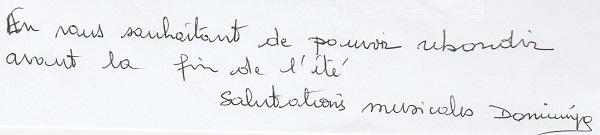 En vous souhaitant de pouvoir rebondir
avant la fin de l'été
Salutations musicales Dominique